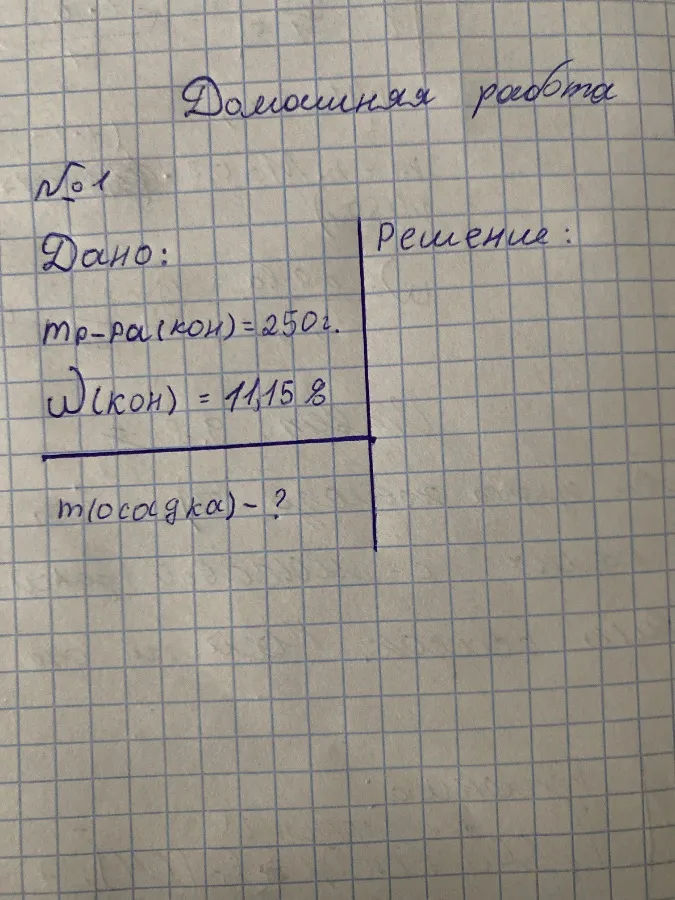 Домашняя работа
№1
Дано:
Решение:
mр-ра(кон)=250г.
W(кон) = 11,15 %
m(осадка) - ?